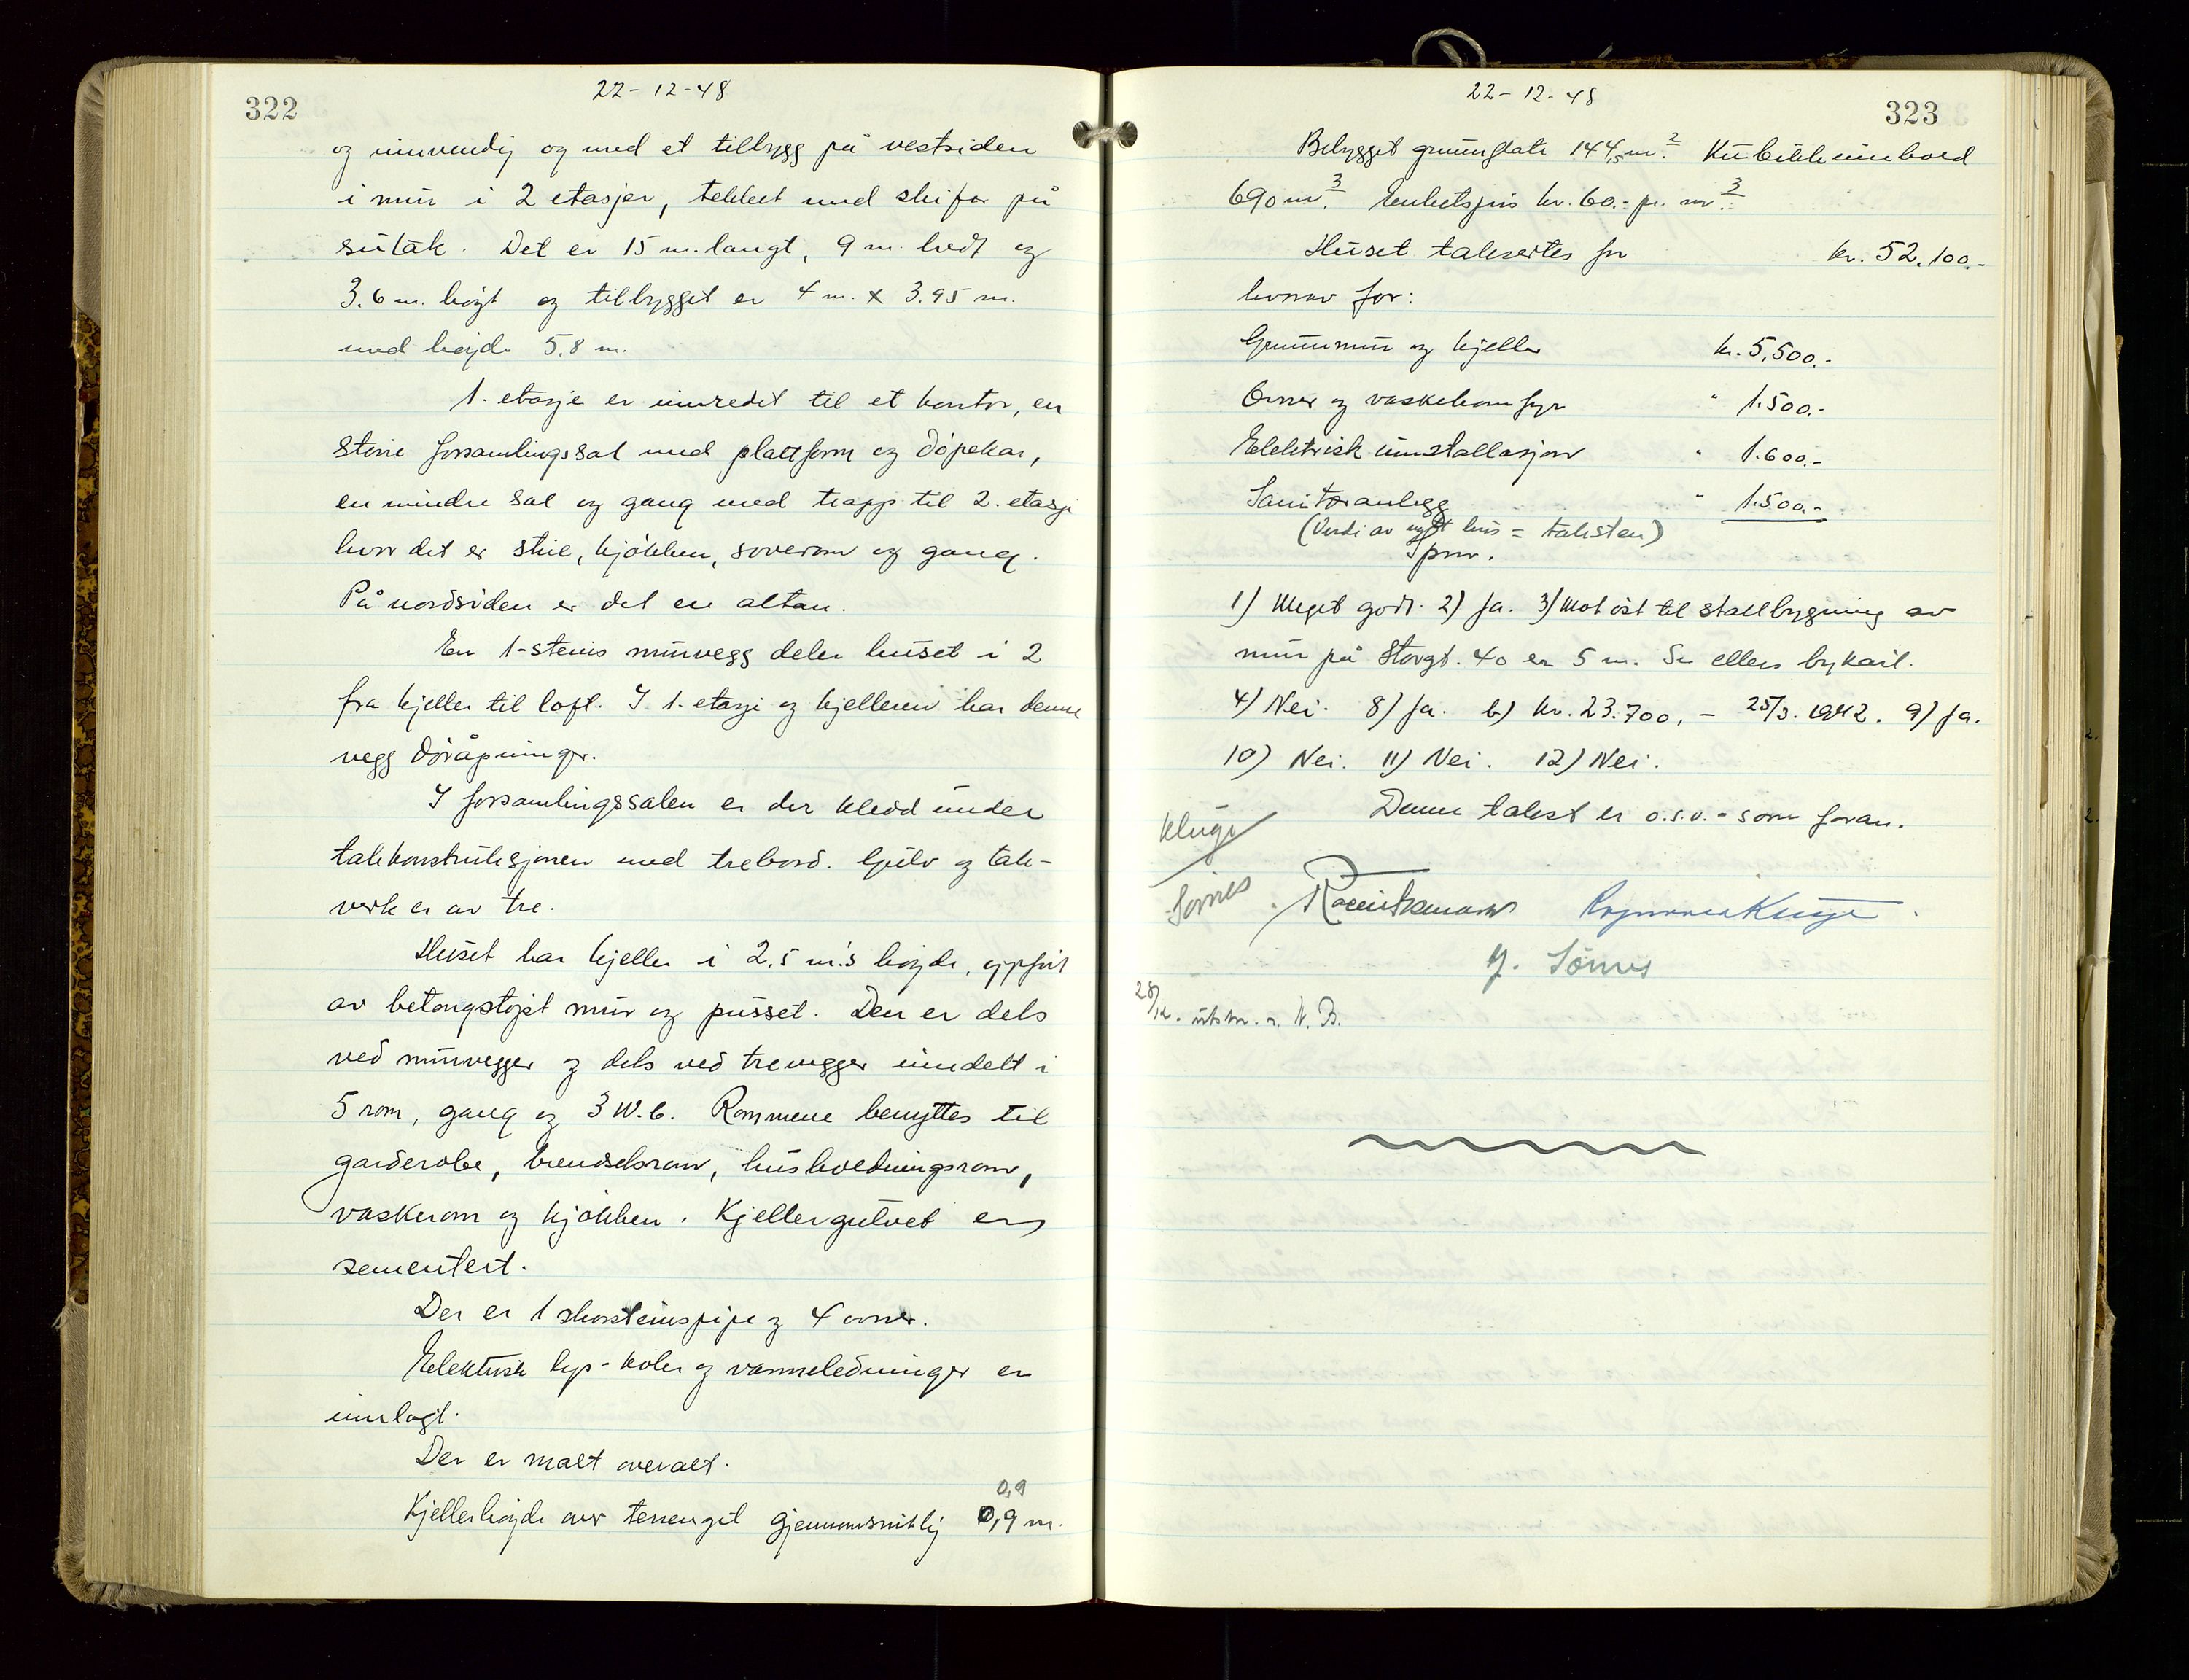 322
22-12-48
og innvendig og med et tilbygg på vestsiden
i mur i 2 etasjer, tekket med skifer på
sutak. Det er 15 m. langt, 9 m. bredt og
3.6 m. høyt og tilbygget er 4 m. x 3.95 m.
med høyde 5.8 m.
1. etasje er innredet til et kontor, en
større forsamlingssal med plattform og döpekar,
en mindre sal og gang med trapp til 2. etasje
hvor det er stue, kjökken, soverom og gang.
På nordsiden er det en altan.
En 1-steins murvegg deler huset i 2
fra kjeller til loft. I 1. etasje og kjelleren har denne
vegg döråpninger.
I forsamlingssalen er der kledd under
takkonstruksjonen med trebord. Gulv og tak-
verk er av tre.
Huset har kjeller i 2,5 m's høyde, oppfört
av betongstøpt mur og pusset. Den er dels
ved murvegger og dels ved trevegger inndelt i
5 rom, gang og 3 W.C. Rommene benyttes til
garderobe, brendselsrom, husholdningsrom,
vaskerom og kjökken. Kjellergulvet er
sementert.
Der er 1 skorsteinspipe og 4 ovner.
Elektrisk lys- koke og varmeledninger er
innlagt.
Der er malt overalt.
0,9
Kjellerhøyde over terrenget gjennomsnitlig 0,9 m.
323
22-12-48
Bebygget grunnflate 144,5 m². Kubikkinnhold
690 m³. Enhetspris kr. 60.- pr. m³.
Huset takseres for kr. 52.100.-
hvorav for:
Grunnmur og kjeller kr. 5.500.-
Ovner og vaskekomfyr " 1.500.-
Elektrisk innstallasjon " 1.600.-
Sanitæranlegg " 1.500.-
(Verdi av nytt hus = taksten)
Spm.
1) Meget godt. 2) Ja. 3) Mot öst til stallbygning av
mur på Storgt. 40 er 5 m. Se ellers bykart.
4) Nei. 8) Ja. b) kr. 23.700,- 25/3. 1942. 9) Ja.
10) Nei. 11) Nei. 12) Nei.
Denne takst er o.s.v. - som foran.
Kluge
Sörnes
Kluge
Y. Sörnes
28/12. utskr. N. B.